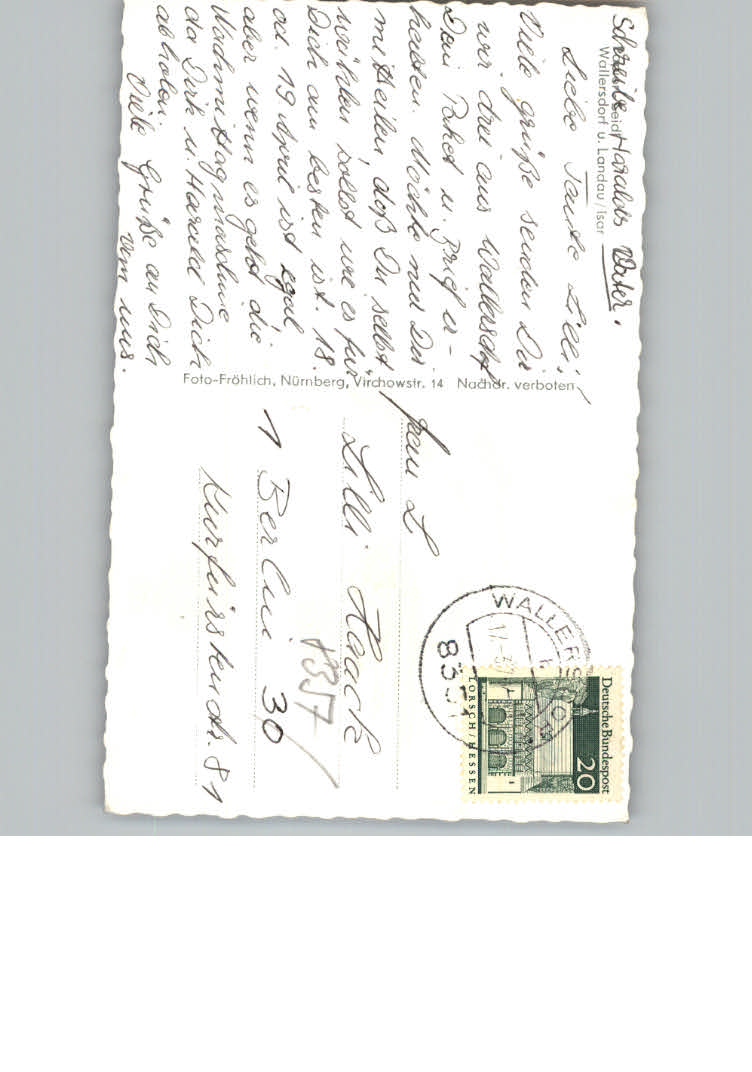 Schreibe Haralds Vater.
Wallersdorf u. Landau/Isar
Liebe Tante Lilli!
Viele grüße senden Dir
wir drei aus Wallersdorf
Dein Paket u. Brief er-
halten. Möchte nur Dir
mitteilen, daß Du selbst
wählen sollst wie es für
Dich am besten ist. 18.
od. 19. April ist egal
aber wenn es geht die
Nachmittagmaschine
da Dirk u. Harald Dich
abholen.
Viele Grüße an Dich
von uns.
Foto-Fröhlich, Nürnberg, Virchowstr. 14 Nachdr. verboten
Frau L
Lilli Haack
1 Berlin 30
1357
Kurfürstenstr. 81
WALLERSDORF
8351
Deutsche Bundespost
20
LORSCH/HESSEN